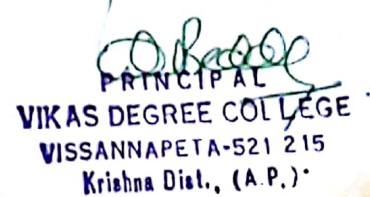 PRINCIPAL
VIKAS DEGREE COLLEGE
VISSANNAPETA-521 215
Krishna Dist., (A.P.)